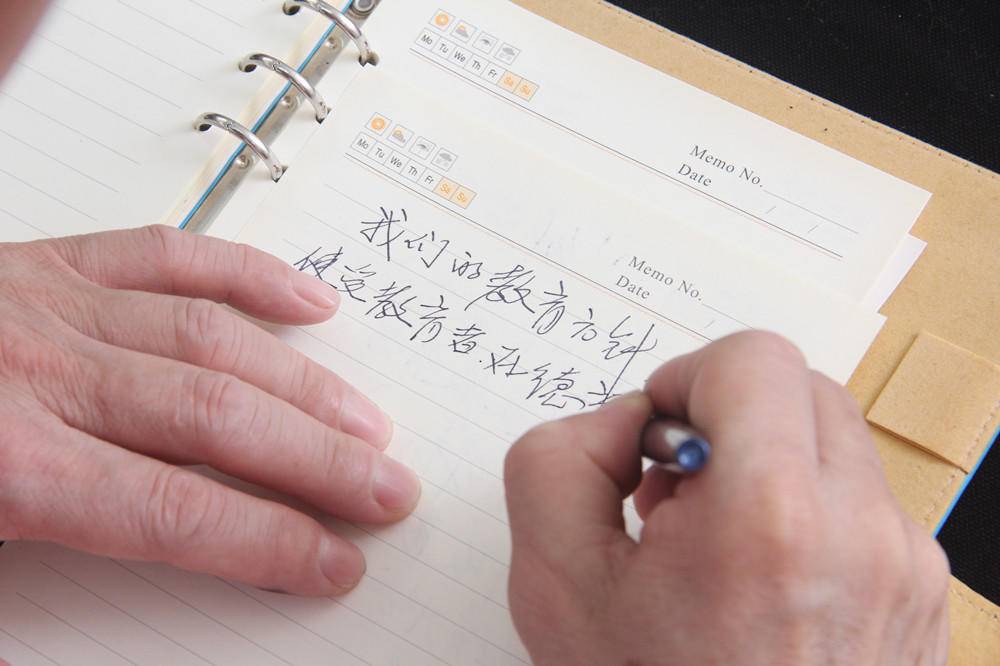 Mo Tu We Th Fr Sa Su
Memo No.
Date / /
Mo Tu We Th Fr Sa Su
Memo No.
Date /
我们的教育方针
使受教育者.在德